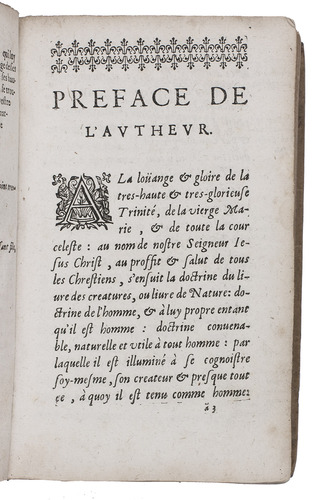 qui soy
PREFACE DE
L'AVTHEVR.
A La loüange & gloire de la
tres-haute & tres-glorieuse
Trinité, de la vierge Ma-
rie, & de toute la cour
celeste : au nom de nostre Seigneur Ie-
sus Christ, au proffit & salut de tous
les Chrestiens, s'ensuit la doctrine du li-
ure des creatures, ou liure de Nature: do-
ctrine de l'homme, & à luy propre entant
qu'il est homme : doctrine conuena-
ble, naturelle et vtile à tout homme : par
laquelle il est illuminé à se cognoistre
soy-mesme, son createur & presque tout
ce, à quoy il est tenu comme homme:
ã 3